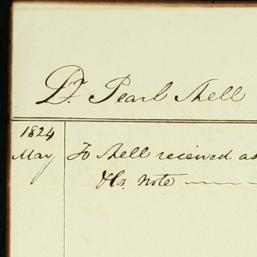 Dr. Pearl Shell
1824
May To Shell received as
note